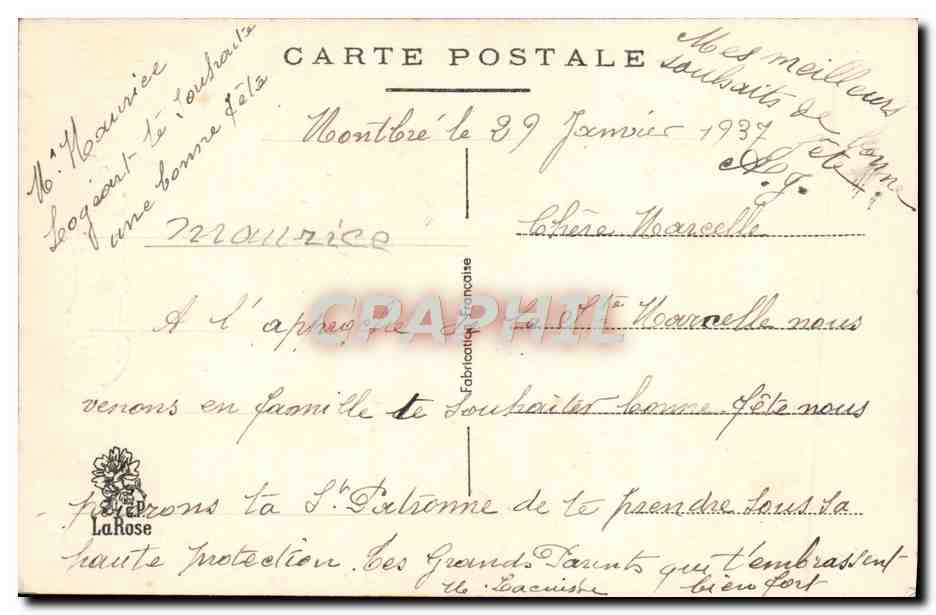 CARTE POSTALE
Montbré le 29 Janvier 1937
Mr Maurice
Logeart te Souhaite
une bonne fête
Mes meilleurs
souhaits de bonne
fête
A. J.
Maurice
Chère Marcelle
A l'approche de la Ste Marcelle nous
venons en famille te souhaiter bonne fête nous
prierons ta Ste Patronne de te prendre sous sa
haute protection. Tes Grands Parents qui t'embrassent
bien fort
Fabrication Française
CPAPHIL
P
La Rose